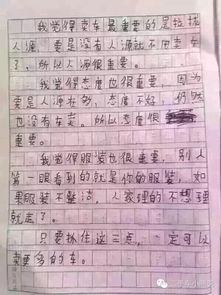 我觉得卖车最重要的是拉拢
人源，要是没有人源就不用卖车
了，所以人源很重要。
我觉得态度也很重要，因为
要是人源在多，态度不好，仍然
也没有车卖。所以态度很
重要。
我觉得服装也很重要，别人
第一眼看到的就是你的服装，如
果服装不整洁，人家理的不想理
就走了。
只要抓住这三点，一定可以
卖更多的车。